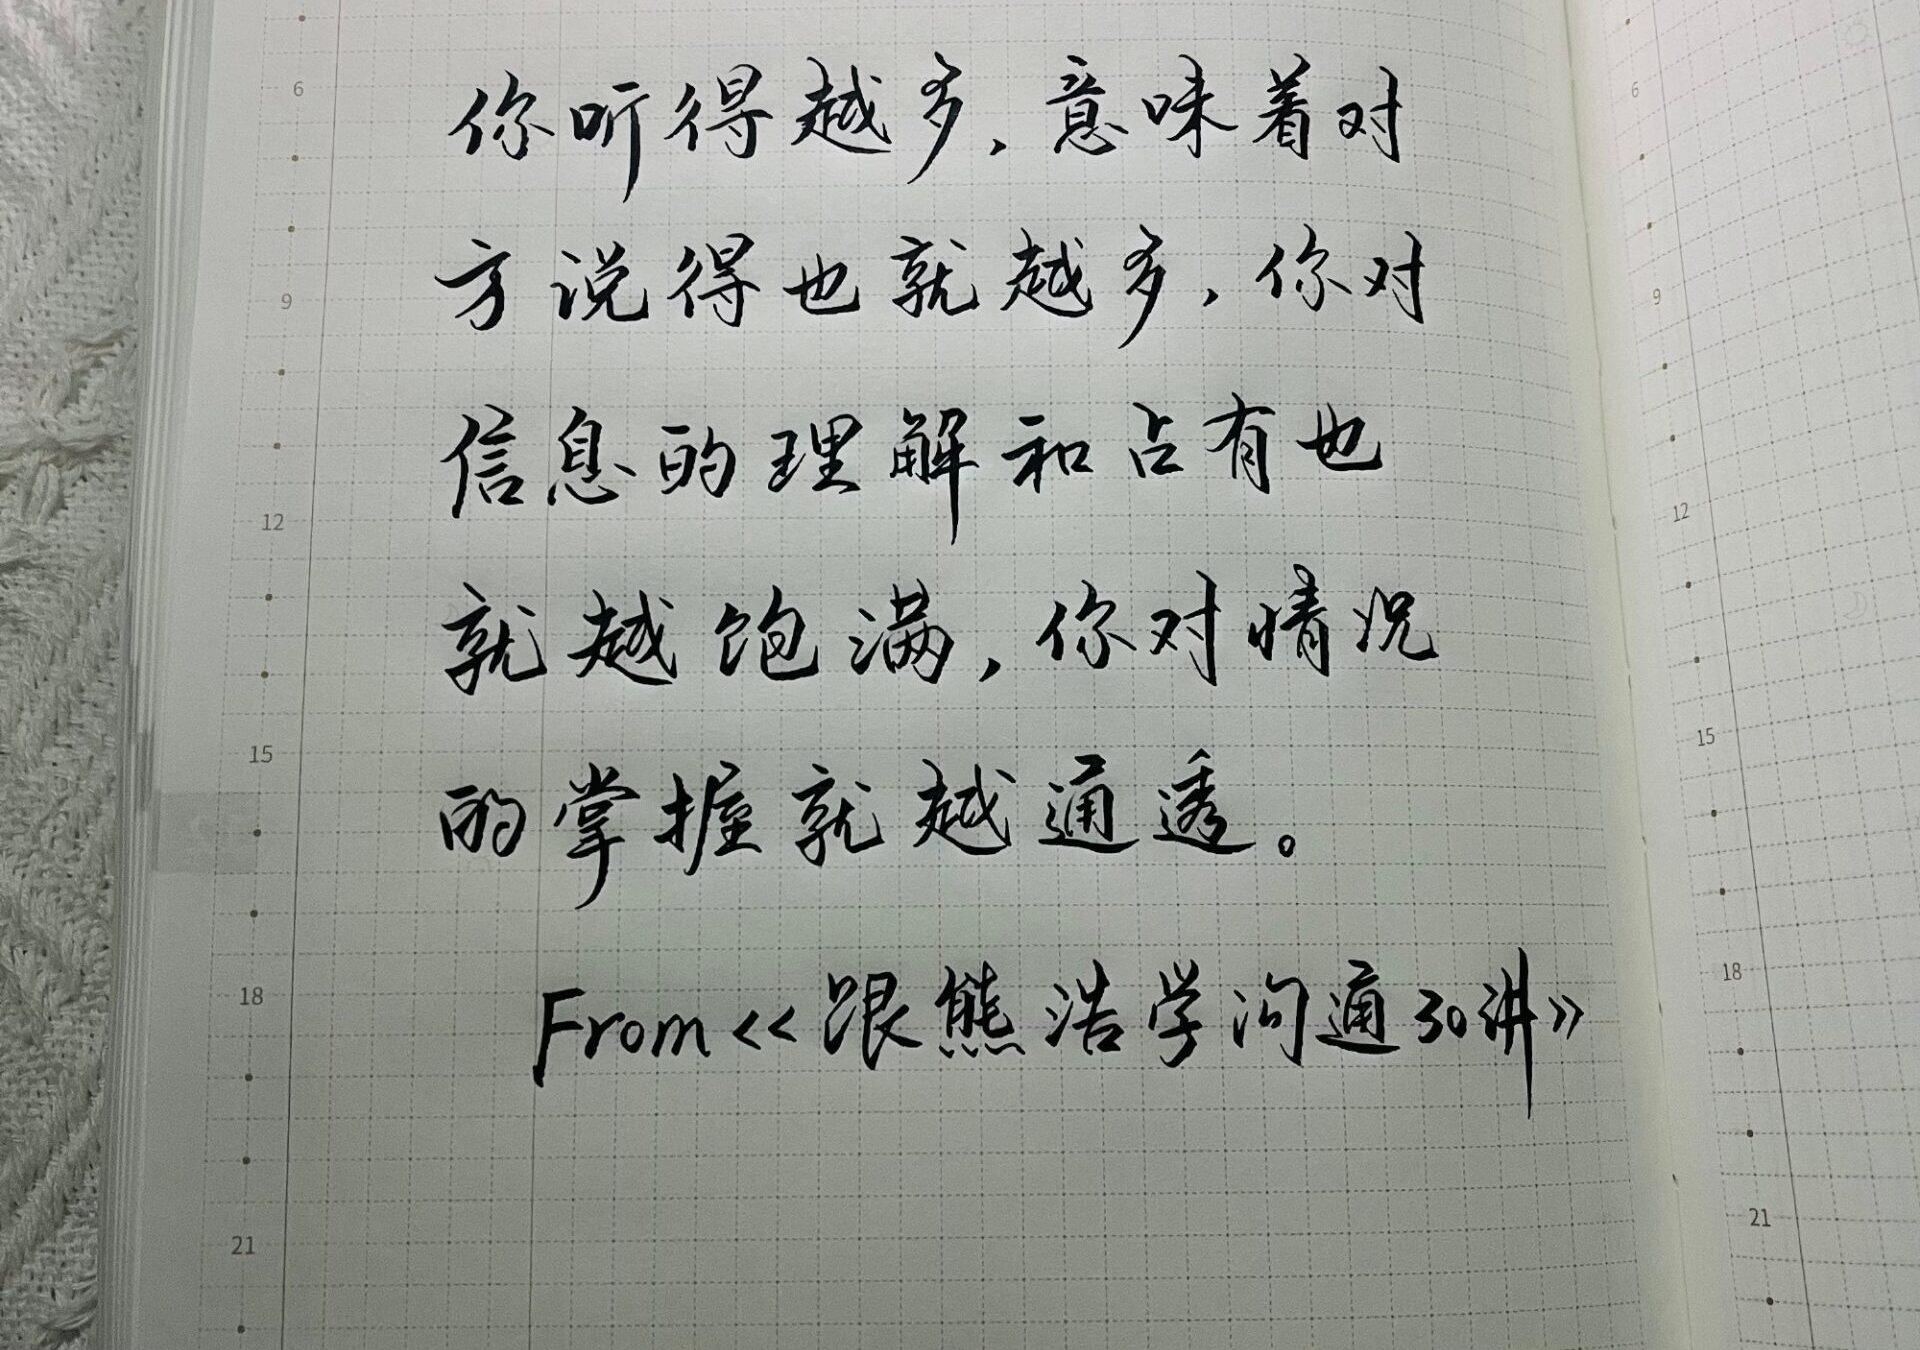 你听得越多，意味着对
方说得也就越多，你对
信息的理解和占有也
就越饱满，你对情况
的掌握就越通透。
From《跟熊浩学沟通30讲》
6
9
12
15
18
21
6
9
12
15
18
21